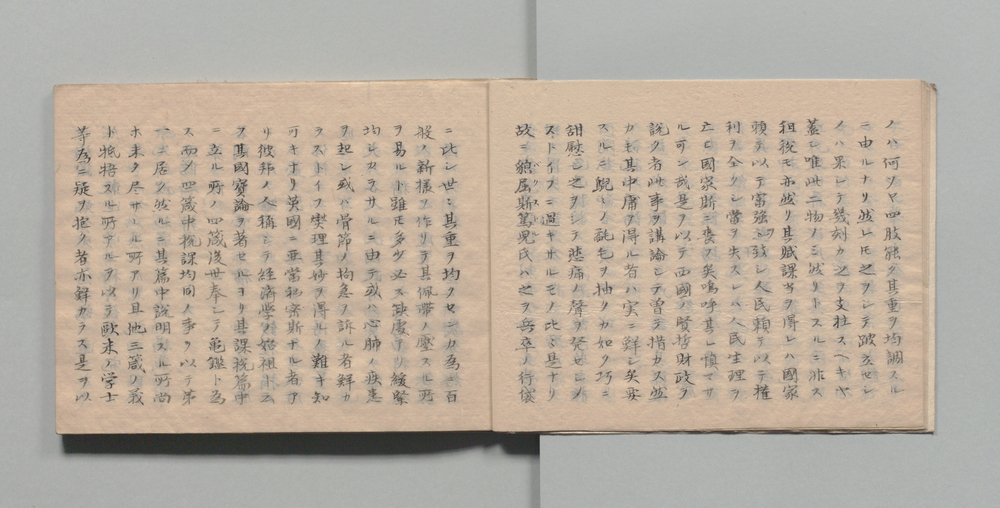 ノハ何ソヤ四肢能ク其重ヲ均調スル
ニ由ルナリ然レモ之ヲシテ跛立セシ
メハ果シテ幾刻カ之ヲ支拄スヘキヤ
蓋シ唯此二物ノミ然リトスルニ非ス
租税モ亦然リ其賦課当ヲ得レハ國家
頼テ以テ富強ヲ致シ人民頼テ以テ権
利ヲ全クシ當ヲ失スレハ人民生理ヲ
亡ヒ國家斯ニ衰フ矣嗚呼其レ慎マサ
ル可ン哉是ヲ以テ西國ノ賢哲財政ヲ
説ク者此事ヲ講論シテ曽テ措カス然
カモ其中庸ヲ得ル者ハ実ニ鮮シ矣
スルニ鯢ヒノ毳毛ヲ抽クカ如ク巧ニ
甜慰シ之ヲシテ悲痛ノ聲ヲ発セシメ
ストイフニ過キサルモノ比々是ナリ
故ニ 屈斯篤児氏ハ之ヲ兵卒ノ行嚢
ニ比シ世々其重ヲ均クセンカ為ニ百
般ノ新様ヲ作リテ其佩帯ノ壓スル所
ヲ易ルト雖モ多少必ス 處アリ緩緊
均シカラサルニ由テ或ハ心肺ノ疾患
ヲ起シ或ハ骨節ノ拘急ヲ訴ル者鮮カ
ラストイフ 理其妙ヲ得ルノ難キ知
可キナリ英國ニ亜當私密斯ナル者ア
リ彼邦ノ人称シテ経済學ノ始祖ト云
フ其國寶論ヲ著セルヨリ其課税篇中
ニ立ル所ノ四箴後世奉シテ亀鑑ト為
ス而メ四箴中税課均同ノ事ヲ以テ第
一ニ居ク然ルニ其篇中説明スル所尚
ホ未タ尽サヽル所アリ且他三箴ノ義
ト牴牾スル所アルヲ以テ歐米ノ学士
等為ニ疑ヲ抱ク者亦鮮カラス是ヲ以